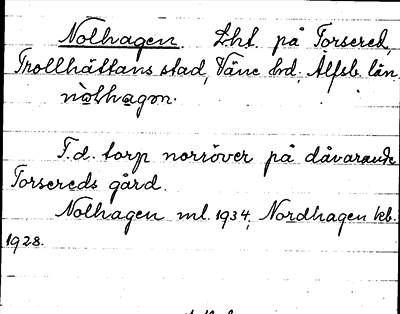 Nolhagen. Lht. på Torsered,
Trollhättans stad, Väne hd, Älfsb. län.
nòlhagen.
F.d. torp norröver på dåvarande
Torsereds gård.
Nolhagen ml. 1934, Nordhagen kb.
1928.